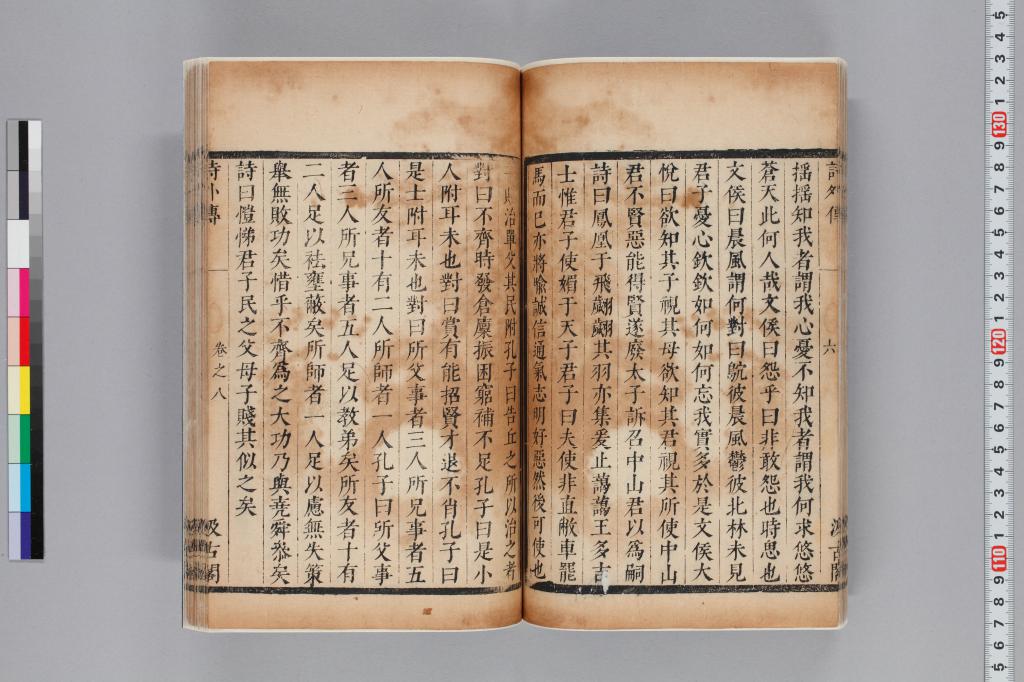 揺揺知我者謂我心憂不知我者謂我何求悠悠
蒼天此何人哉文侯曰怨乎曰非敢怨也時思也
文侯曰晨風謂何對曰鴥彼晨風鬱彼北林未見
君子憂心欽欽如何如何忘我實多於是文侯大
悅曰欲知其子視其母欲知其君視其所使中山
君不賢惡能得賢遂廢太子訴召中山君以為嗣
詩曰鳳凰于飛翽翽其羽亦集爰止藹藹王多吉
士惟君子使媚于天子君子曰夫使非直敝車罷
馬而已亦將喻誠信通氣志明好惡然後可使也
治單父其民附孔子曰告丘之所以治之者
對曰不齊時發倉廩振困窮補不足孔子曰是小
人附耳未也對曰賞有能招賢才退不肖孔子曰
是士附耳未也對曰所父事者三人所兄事者五
人所友者十有二人所師者一人孔子曰所父事
者三人所兄事者五人足以教弟矣所友者十有
二人足以祛壅蔽矣所師者一人足以慮無失策
舉無敗功矣惜乎不齊為之大功乃與堯舜叅矣
詩曰愷悌君子民之父母子賤其似之矣
卷之八
汲古閣
六